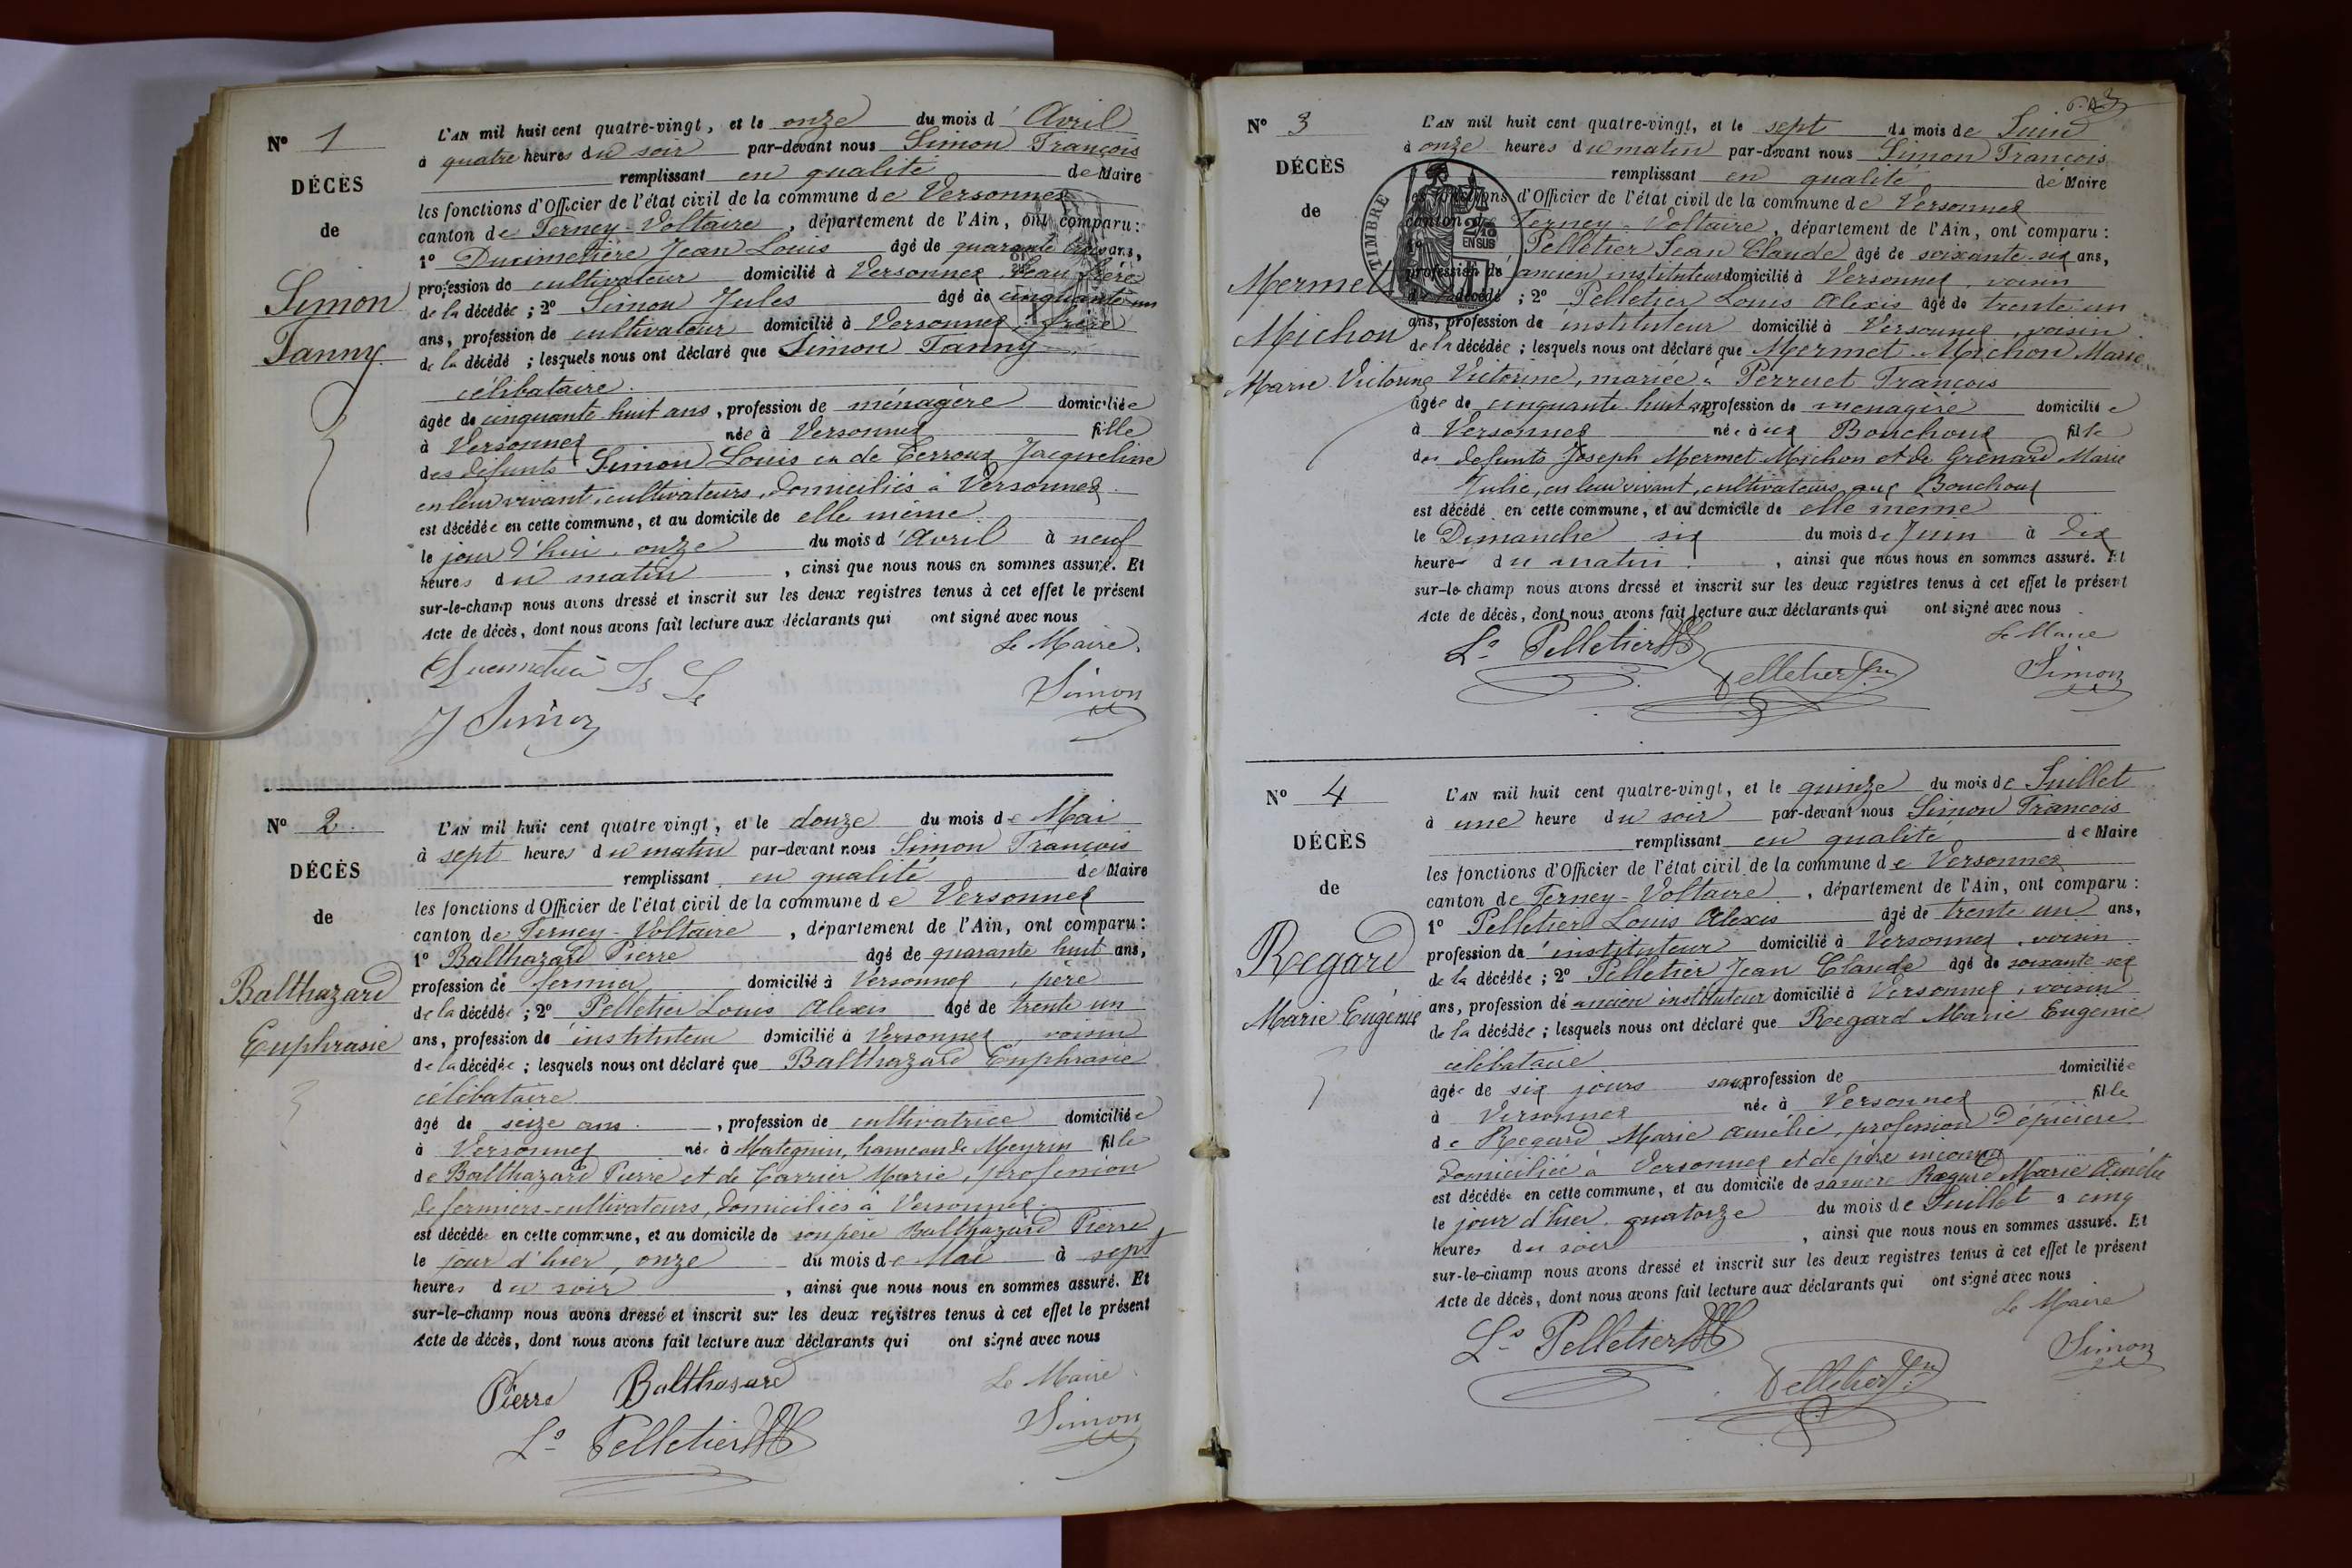 Nº 1
DÉCÈS
de
Simon
Fanny
L'AN mil huit cent quatre-vingt, et le onze du mois d'Avril
à quatre heures du soir par-devant nous Simon François
remplissant en qualité de Maire
les fonctions d'Officier de l'état civil de la commune de Versonnex
canton de Ferney-Voltaire, département de l'Ain, ont comparu :
1º Ducimetière Jean Louis âgé de quarante ans,
profession de cultivateur domicilié à Versonnex beau frère
de la décédée ; 2º Simon Jules âgé de cinquante un
ans, profession de cultivateur domicilié à Versonnex, frère
de la décédé ; lesquels nous ont déclaré que Simon Fanny
célibataire.
âgée de cinquante huit ans, profession de ménagère domiciliée
à Versonnex née à Versonnex fille
des défunts Simon Louis et de Perroux Jacqueline
en leur vivant, cultivateurs, domiciliés à Versonnex.
est décédée en cette commune, et au domicile de elle même.
le jour d'hui, onze du mois d'Avril à neuf
heures du matin, ainsi que nous nous en sommes assuré. Et
sur-le-champ nous avons dressé et inscrit sur les deux registres tenus à cet effet le présent
Acte de décès, dont nous avons fait lecture aux déclarants qui ont signé avec nous
Le Maire.
Simon
J Simon
Nº 2
DÉCÈS
de
Balthazard
Euphrasie
L'AN mil huit cent quatre vingt, et le douze du mois de Mai
à sept heures du matin par-devant nous Simon François
remplissant en qualité de Maire
les fonctions d'Officier de l'état civil de la commune de Versonnex
canton de Ferney-Voltaire, département de l'Ain, ont comparu :
1º Balthazard Pierre âgé de quarante huit ans,
profession de fermier domicilié à Versonnex, père
de la décédée ; 2º Pelletier Louis Alexis âgé de trente un
ans, profession d'instituteur domicilié à Versonnex, voisin
de la décédée ; lesquels nous ont déclaré que Balthazard Euphrasie
célibataire
âgé de seize ans, profession de cultivatrice domiciliée
à Versonnex née à Mategnin, hameau de Meyrin fille
de Balthazard Pierre et de Carrier Marie, profession
de fermiers-cultivateurs, domiciliés à Versonnex.
est décédée en cette commune, et au domicile de son père Balthazard Pierre
le jour d'hier, onze du mois de Mai à sept
heures du soir, ainsi que nous nous en sommes assuré. Et
sur-le-champ nous avons dressé et inscrit sur les deux registres tenus à cet effet le présent
Acte de décès, dont nous avons fait lecture aux déclarants qui ont signé avec nous
Pierre Balthasard Le Maire
Ls Pelletier Simon
Nº 3
DÉCÈS
de
Mermet
Michon
Marie Victorine
TIMBRE
EN SUS
L'AN mil huit cent quatre-vingt, et le sept du mois de Juin
à onze heures du matin par-devant nous Simon François
remplissant en qualité de Maire
les fonctions d'Officier de l'état civil de la commune de Versonnex
canton de Ferney-Voltaire, département de l'Ain, ont comparu :
1º Pelletier Jean Claude âgé de soixante-six ans,
profession d'ancien instituteur domicilié à Versonnex, voisin
de la décédé ; 2º Pelletier Louis Alexis âgé de trente un
ans, profession d'instituteur domicilié à Versonnex, voisin
de la décédée ; lesquels nous ont déclaré que Mermet-Michon Marie
Victorine, mariée à Perruet François
âgée de cinquante huit ans profession de ménagère domiciliée
à Versonnex née aux Bouchoux fille
des défunts Joseph Mermet-Michon et de Grenard Marie
Julie, en leur vivant, cultivateurs, aux Bouchoux
est décédé en cette commune, et au domicile de elle même
le Dimanche six du mois de Juin à dix
heures du matin, ainsi que nous nous en sommes assuré. Et
sur-le-champ nous avons dressé et inscrit sur les deux registres tenus à cet effet le présent
Acte de décès, dont nous avons fait lecture aux déclarants qui ont signé avec nous
Le Maire
Ls Pelletier Pelletier Simon
Nº 4
DÉCÈS
de
Regard
Marie Eugénie
L'AN mil huit cent quatre-vingt, et le quinze du mois de Juillet
à une heure du soir par-devant nous Simon François
remplissant en qualité de Maire
les fonctions d'Officier de l'état civil de la commune de Versonnex
canton de Ferney-Voltaire, département de l'Ain, ont comparu :
1º Pelletier Louis Alexis âgé de trente un ans,
profession d'instituteur domicilié à Versonnex, voisin
de la décédée ; 2º Pelletier Jean Claude âgé de soixante-six
ans, profession d'ancien instituteur domicilié à Versonnex, voisin
de la décédée ; lesquels nous ont déclaré que Regard Marie Eugénie
célibataire
âgée de six jours sans profession de domiciliée
à Versonnex née à Versonnex fille
de Regard Marie Amélie, profession d'épicière
domiciliée à Versonnex et de père inconnu
est décédée en cette commune, et au domicile de sa mère Regard Marie Amélie
le jour d'hier, quatorze du mois de Juillet à cinq
heures du soir, ainsi que nous nous en sommes assuré. Et
sur-le-champ nous avons dressé et inscrit sur les deux registres tenus à cet effet le présent
Acte de décès, dont nous avons fait lecture aux déclarants qui ont signé avec nous
Le Maire
Ls Pelletier Pelletier Simon